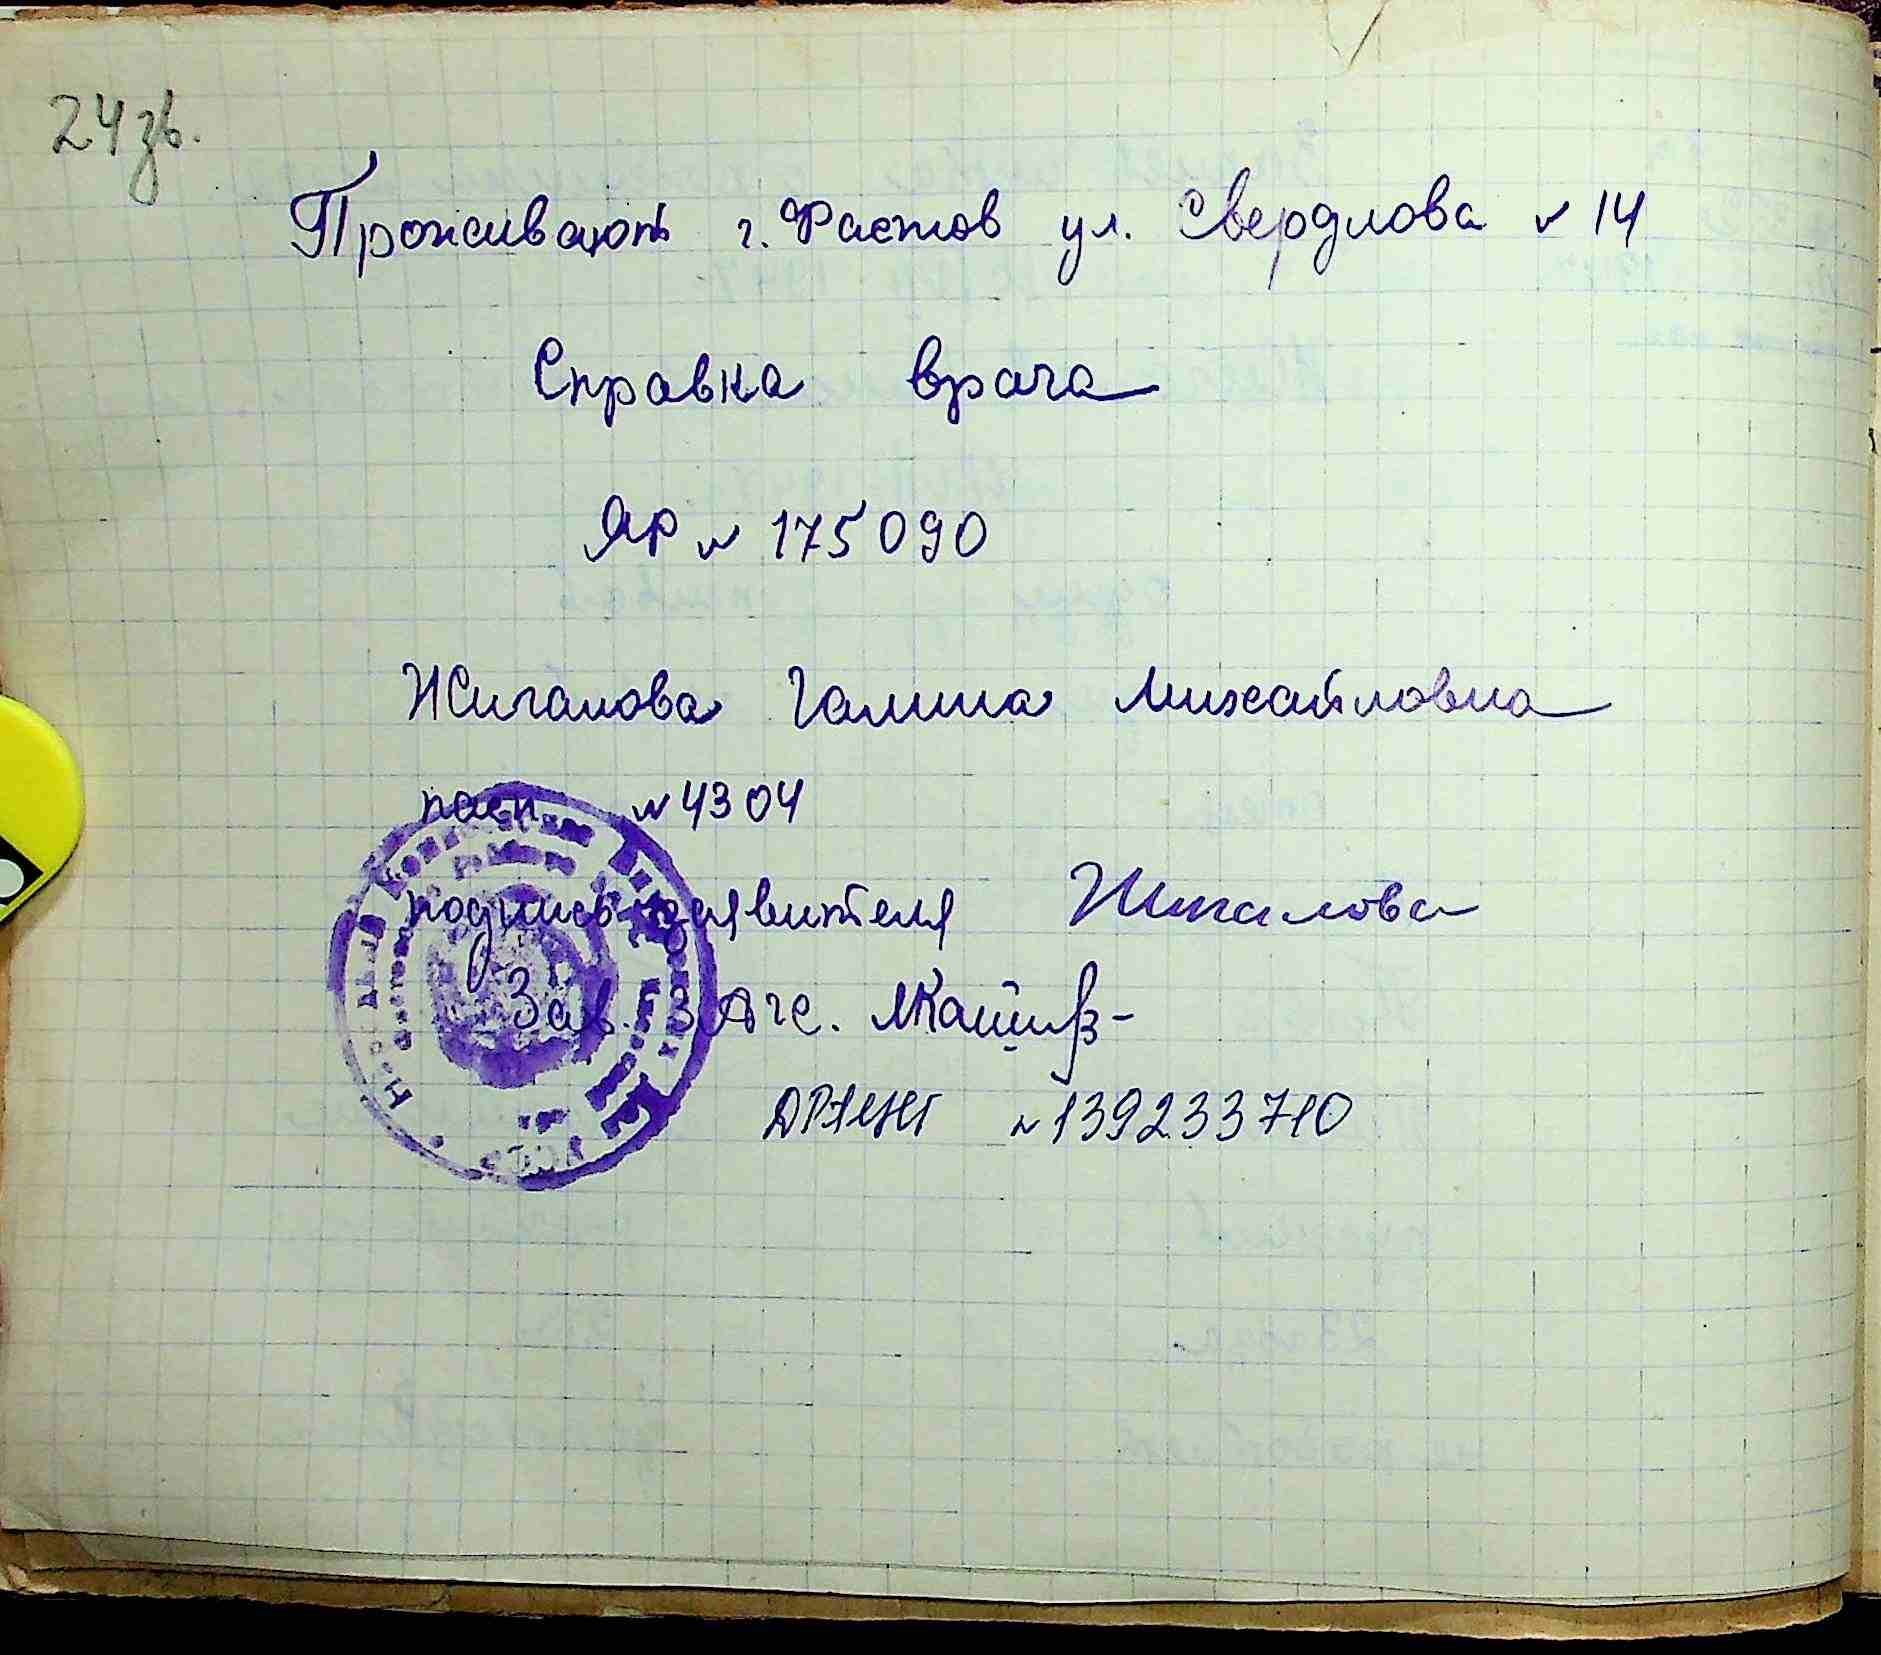 24 зв.
Проживають г. Фастов ул. Свердлова № 14
Справка врача
ЯР № 175090
Жигалова Галина Михайловна
пасп № 4304
подпись заявителя Жигалова
Зав. ЗАГС.
№ 139233710